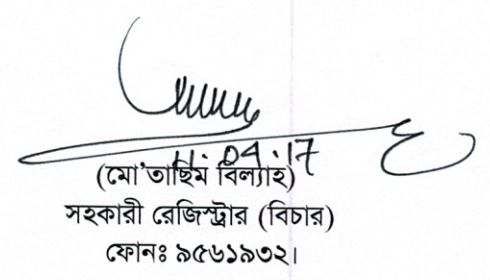 11.04.17
(মো'তাছিম বিল্যাহ)
সহকারী রেজিস্ট্রার (বিচার)
ফোনঃ ৯৫৬১৯৩২।